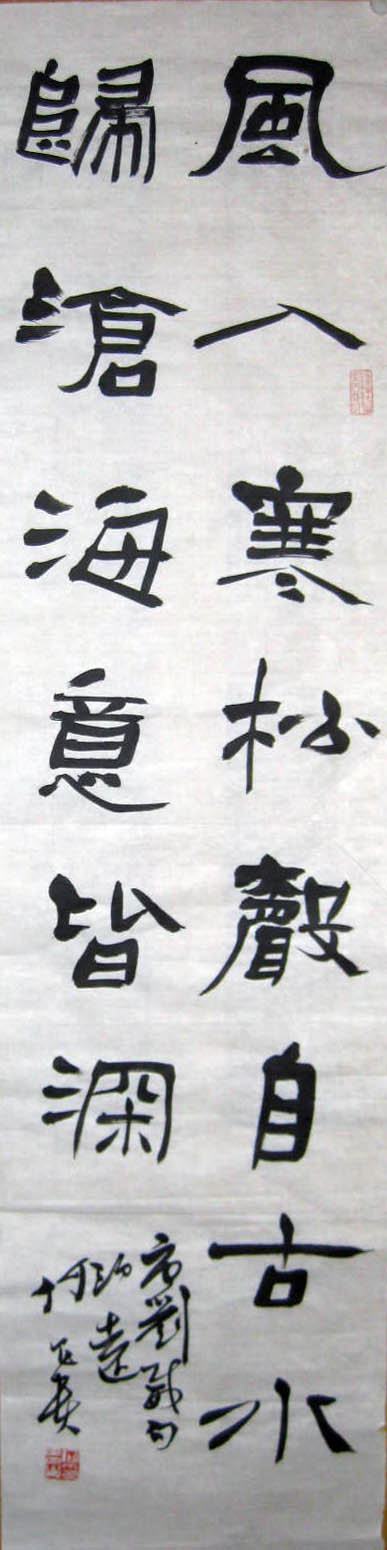 風入寒松聲自古水
歸滄海意皆深
劉威句